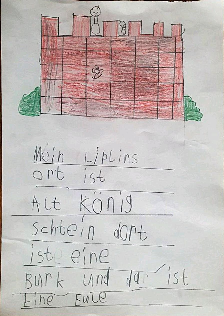 Mein Liblins
ort ist
Alt König
Schtein dort
ist eine
Burk und da ist
Eine Eule